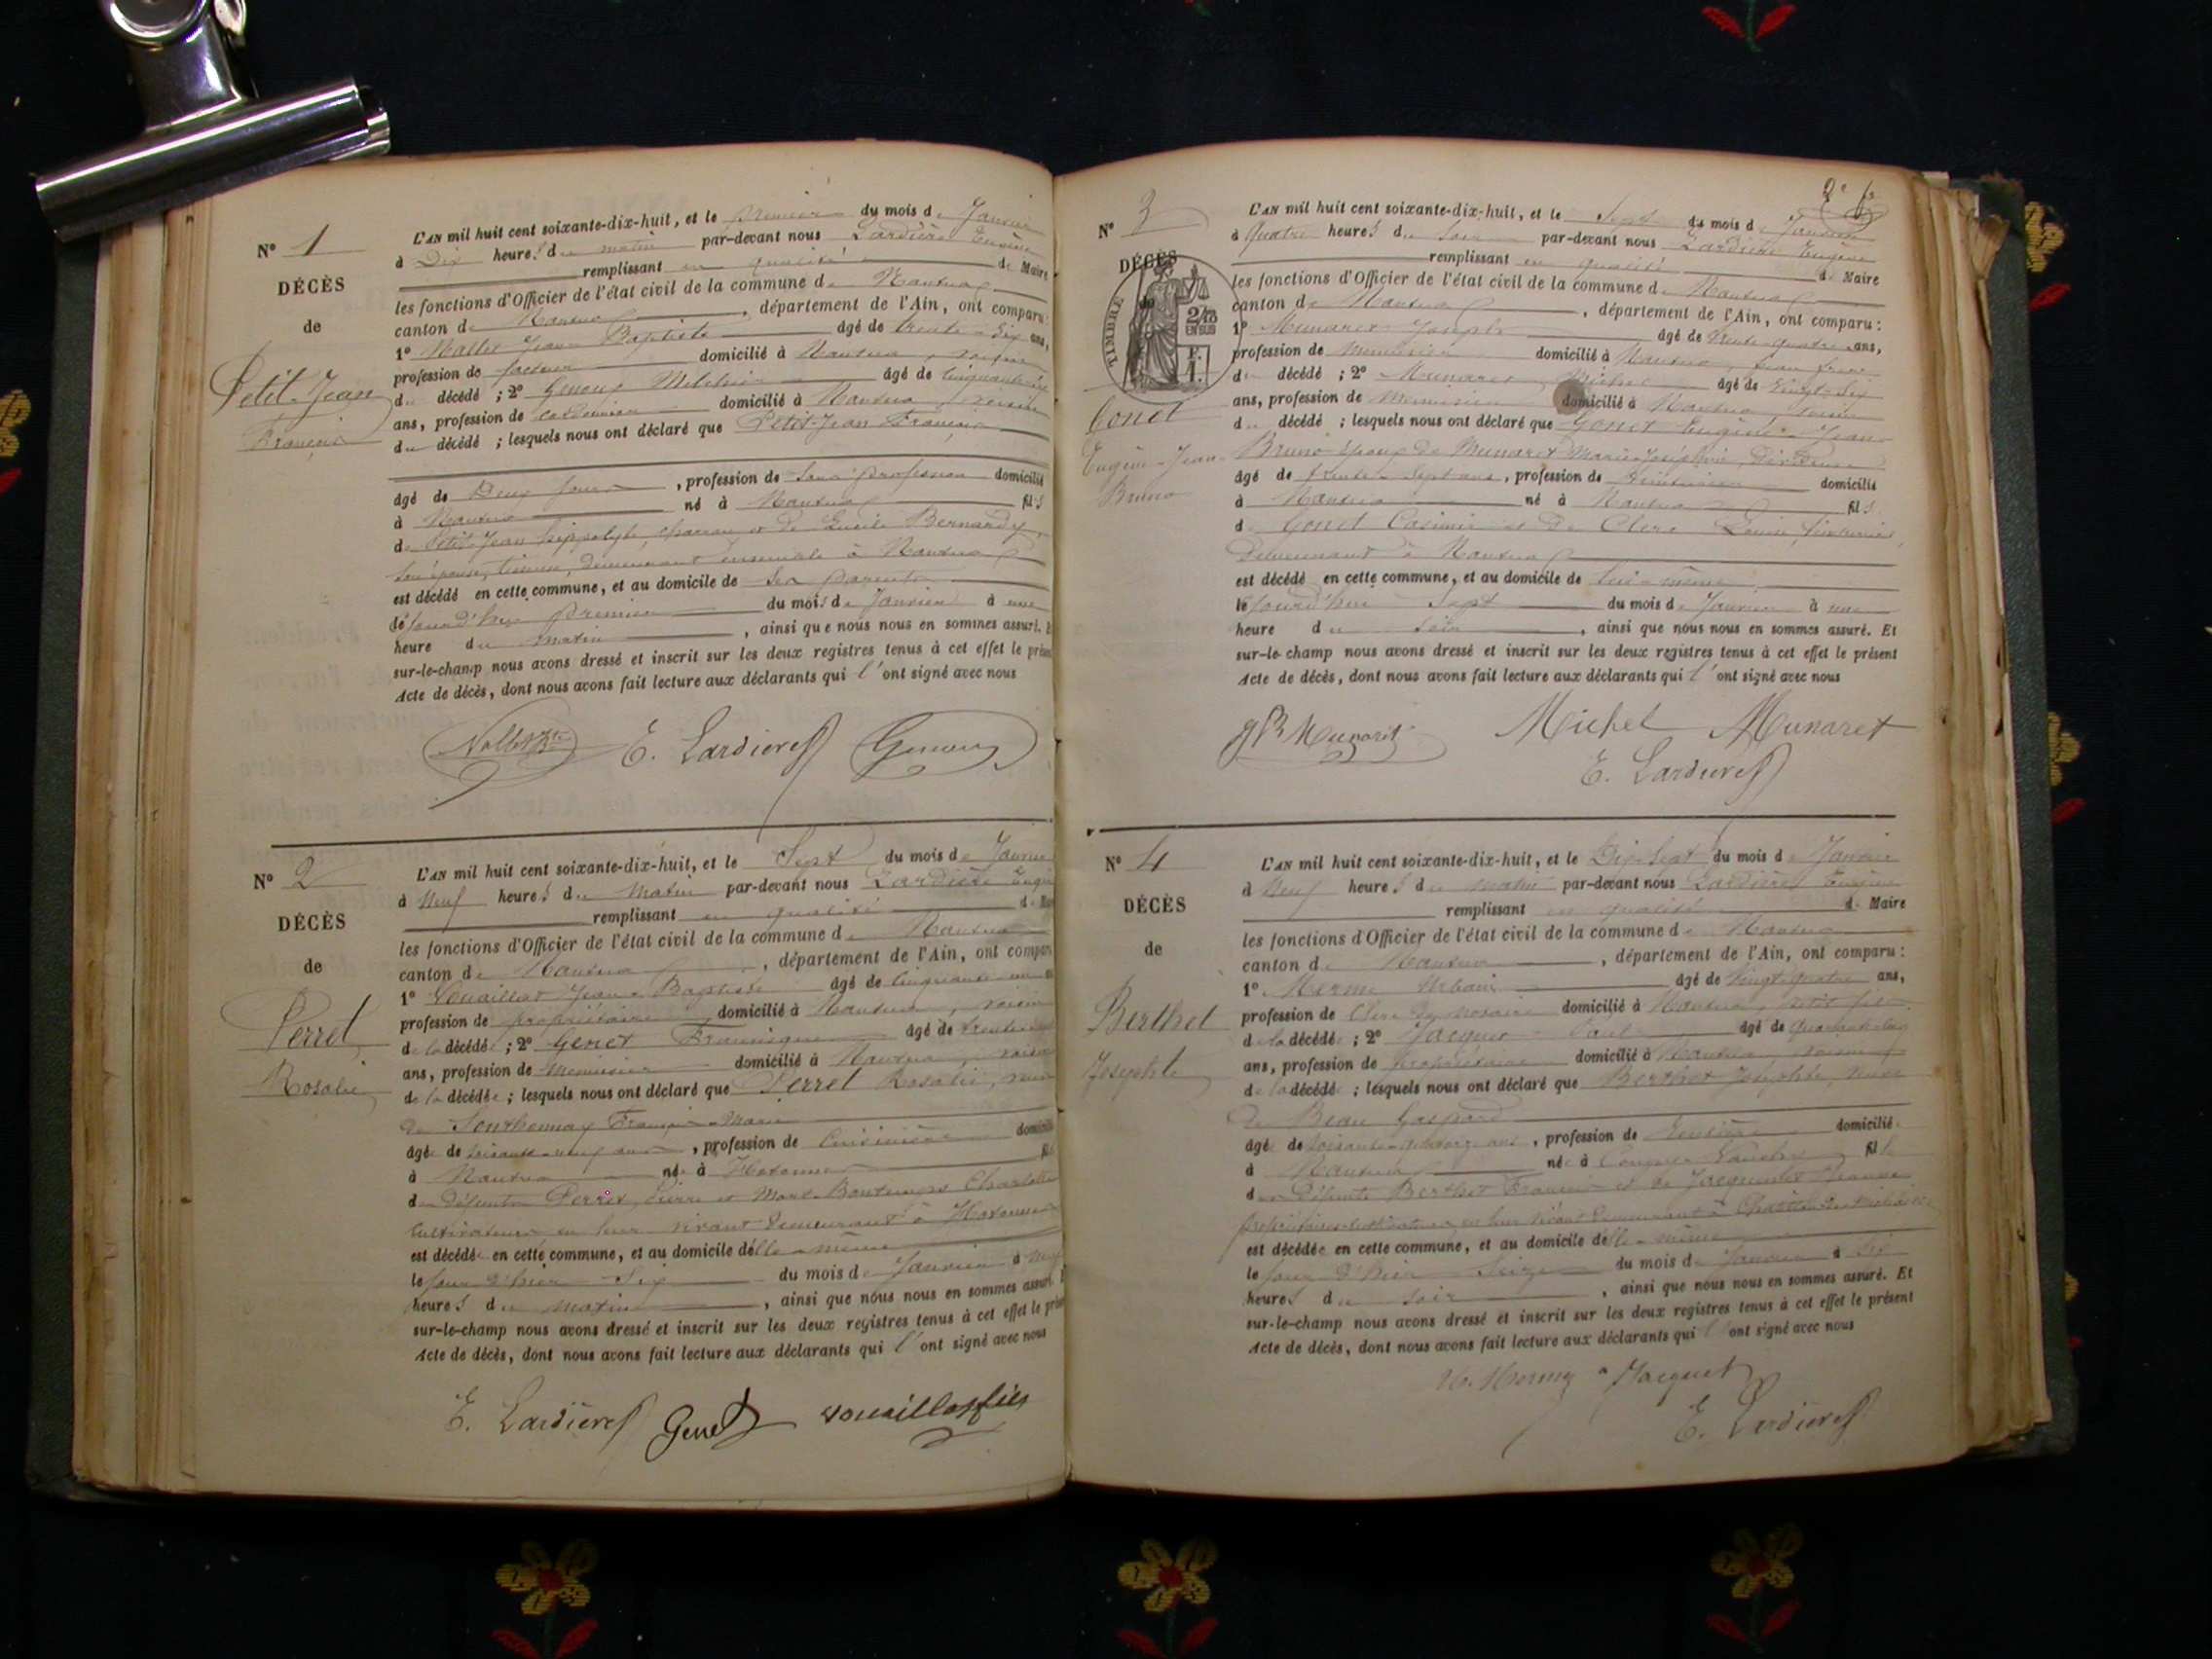 Nº 1
DÉCÈS
de
Petit-Jean
François
L'AN mil huit cent soixante-dix-huit, et le premier du mois de Janvier
à Dix heures du matin par-devant nous Lardière Eugène
remplissant en qualité de Maire
les fonctions d'Officier de l'état civil de la commune de Nantua
canton de Nantua, département de l'Ain, ont comparu:
1º Jean-Baptiste âgé de trente-six ans,
profession de facteur domicilié à Nantua, voisin
du décédé ; 2º âgé de
ans, profession de cordonnier domicilié à Nantua, voisin
du décédé ; lesquels nous ont déclaré que Petit-Jean François
âgé de Deux jours, profession de sans profession domicilié
à Nantua né à Nantua fils
de Petit-Jean hippolyte, et de Bernardy
son épouse, demeurant ensemble à Nantua
est décédé en cette commune, et au domicile de ses parents
le jourd'hui premier du mois de Janvier à une
heure du matin, ainsi que nous nous en sommes assuré. Et
sur-le-champ nous avons dressé et inscrit sur les deux registres tenus à cet effet le présent
Acte de décès, dont nous avons fait lecture aux déclarants qui l'ont signé avec nous
E. Lardière
Nº 2
DÉCÈS
de
Perret
Rosalie
L'AN mil huit cent soixante-dix-huit, et le Sept du mois de Janvier
à Neuf heures du matin par-devant nous Lardière Eugène
remplissant en qualité de
les fonctions d'Officier de l'état civil de la commune de Nantua
canton de Nantua, département de l'Ain, ont comparu
1º Jean-Baptiste âgé de cinquante
profession de propriétaire domicilié à Nantua, voisin
de la décédée ; 2º Genet âgé de
ans, profession de Menuisier domicilié à Nantua, voisin
de la décédée ; lesquels nous ont déclaré que Perret Rosalie, veuve
de Sonthonnax François-Marie
âgée de soixante-neuf ans, profession de Cuisinière domiciliée
à Nantua née à Hotonnes
de défunts Perret Pierre et
cultivateurs en leur vivant demeurant à Hotonnes
est décédée en cette commune, et au domicile d'elle-même
le jour d'hier Six du mois de Janvier à
heures du matin, ainsi que nous nous en sommes assuré.
sur-le-champ nous avons dressé et inscrit sur les deux registres tenus à cet effet le présent
Acte de décès, dont nous avons fait lecture aux déclarants qui l'ont signé avec nous
E. Lardière Genet
2e
Nº 3
DÉCÈS
de
TIMBRE
2/10
EN SUS
F.
1.
Gonet
Eugène-Jean-
Bruno
L'AN mil huit cent soixante-dix-huit, et le Sept du mois de Janvier
à Quatre heures du soir par-devant nous Lardière Eugène
remplissant en qualité de Maire
les fonctions d'Officier de l'état civil de la commune de Nantua
canton de Nantua, département de l'Ain, ont comparu :
1º Munaret Joseph âgé de trente-quatre ans,
profession de Menuisier domicilié à Nantua, beau frère
du décédé ; 2º Munaret Michel âgé de Vingt-six
ans, profession de Menuisier domicilié à Nantua, voisin
du décédé ; lesquels nous ont déclaré que Gonet Eugène-Jean-
Bruno époux de Munaret Marie-Joséphine
âgé de trente-sept ans, profession de domicilié
à Nantua né à Nantua fils
de Gonet Casimir et de Clerc Louise
demeurant à Nantua
est décédé en cette commune, et au domicile de lui-même
le jourd'hui Sept du mois de Janvier à une
heure du soir, ainsi que nous nous en sommes assuré. Et
sur-le-champ nous avons dressé et inscrit sur les deux registres tenus à cet effet le présent
Acte de décès, dont nous avons fait lecture aux déclarants qui l'ont signé avec nous
Munaret Michel Munaret
E. Lardière
Nº 4
DÉCÈS
de
Berthet
Josephte
L'AN mil huit cent soixante-dix-huit, et le Dix-Sept du mois de Janvier
à Neuf heures du matin par-devant nous Lardière Eugène
remplissant en qualité de Maire
les fonctions d'Officier de l'état civil de la commune de Nantua
canton de Nantua, département de l'Ain, ont comparu :
1º Merme Urbain âgé de Vingt-quatre ans,
profession de Clerc de notaire domicilié à Nantua, petit fils
de la décédée ; 2º Jacquet Paul âgé de quarante-cinq
ans, profession de propriétaire domicilié à Nantua, voisin
de la décédée ; lesquels nous ont déclaré que Berthet Josephte, veuve
de Beau Gaspard
âgée de soixante-quatorze ans, profession de Rentière domiciliée
à Nantua née à fille
de défunts Berthet François et de
propriétaires-cultivateurs en leur vivant demeurant à
est décédée en cette commune, et au domicile d'elle-même
le jour d'hier Seize du mois de Janvier à six
heures du soir, ainsi que nous nous en sommes assuré. Et
sur-le-champ nous avons dressé et inscrit sur les deux registres tenus à cet effet le présent
Acte de décès, dont nous avons fait lecture aux déclarants qui l'ont signé avec nous
Jacquet
E. Lardière